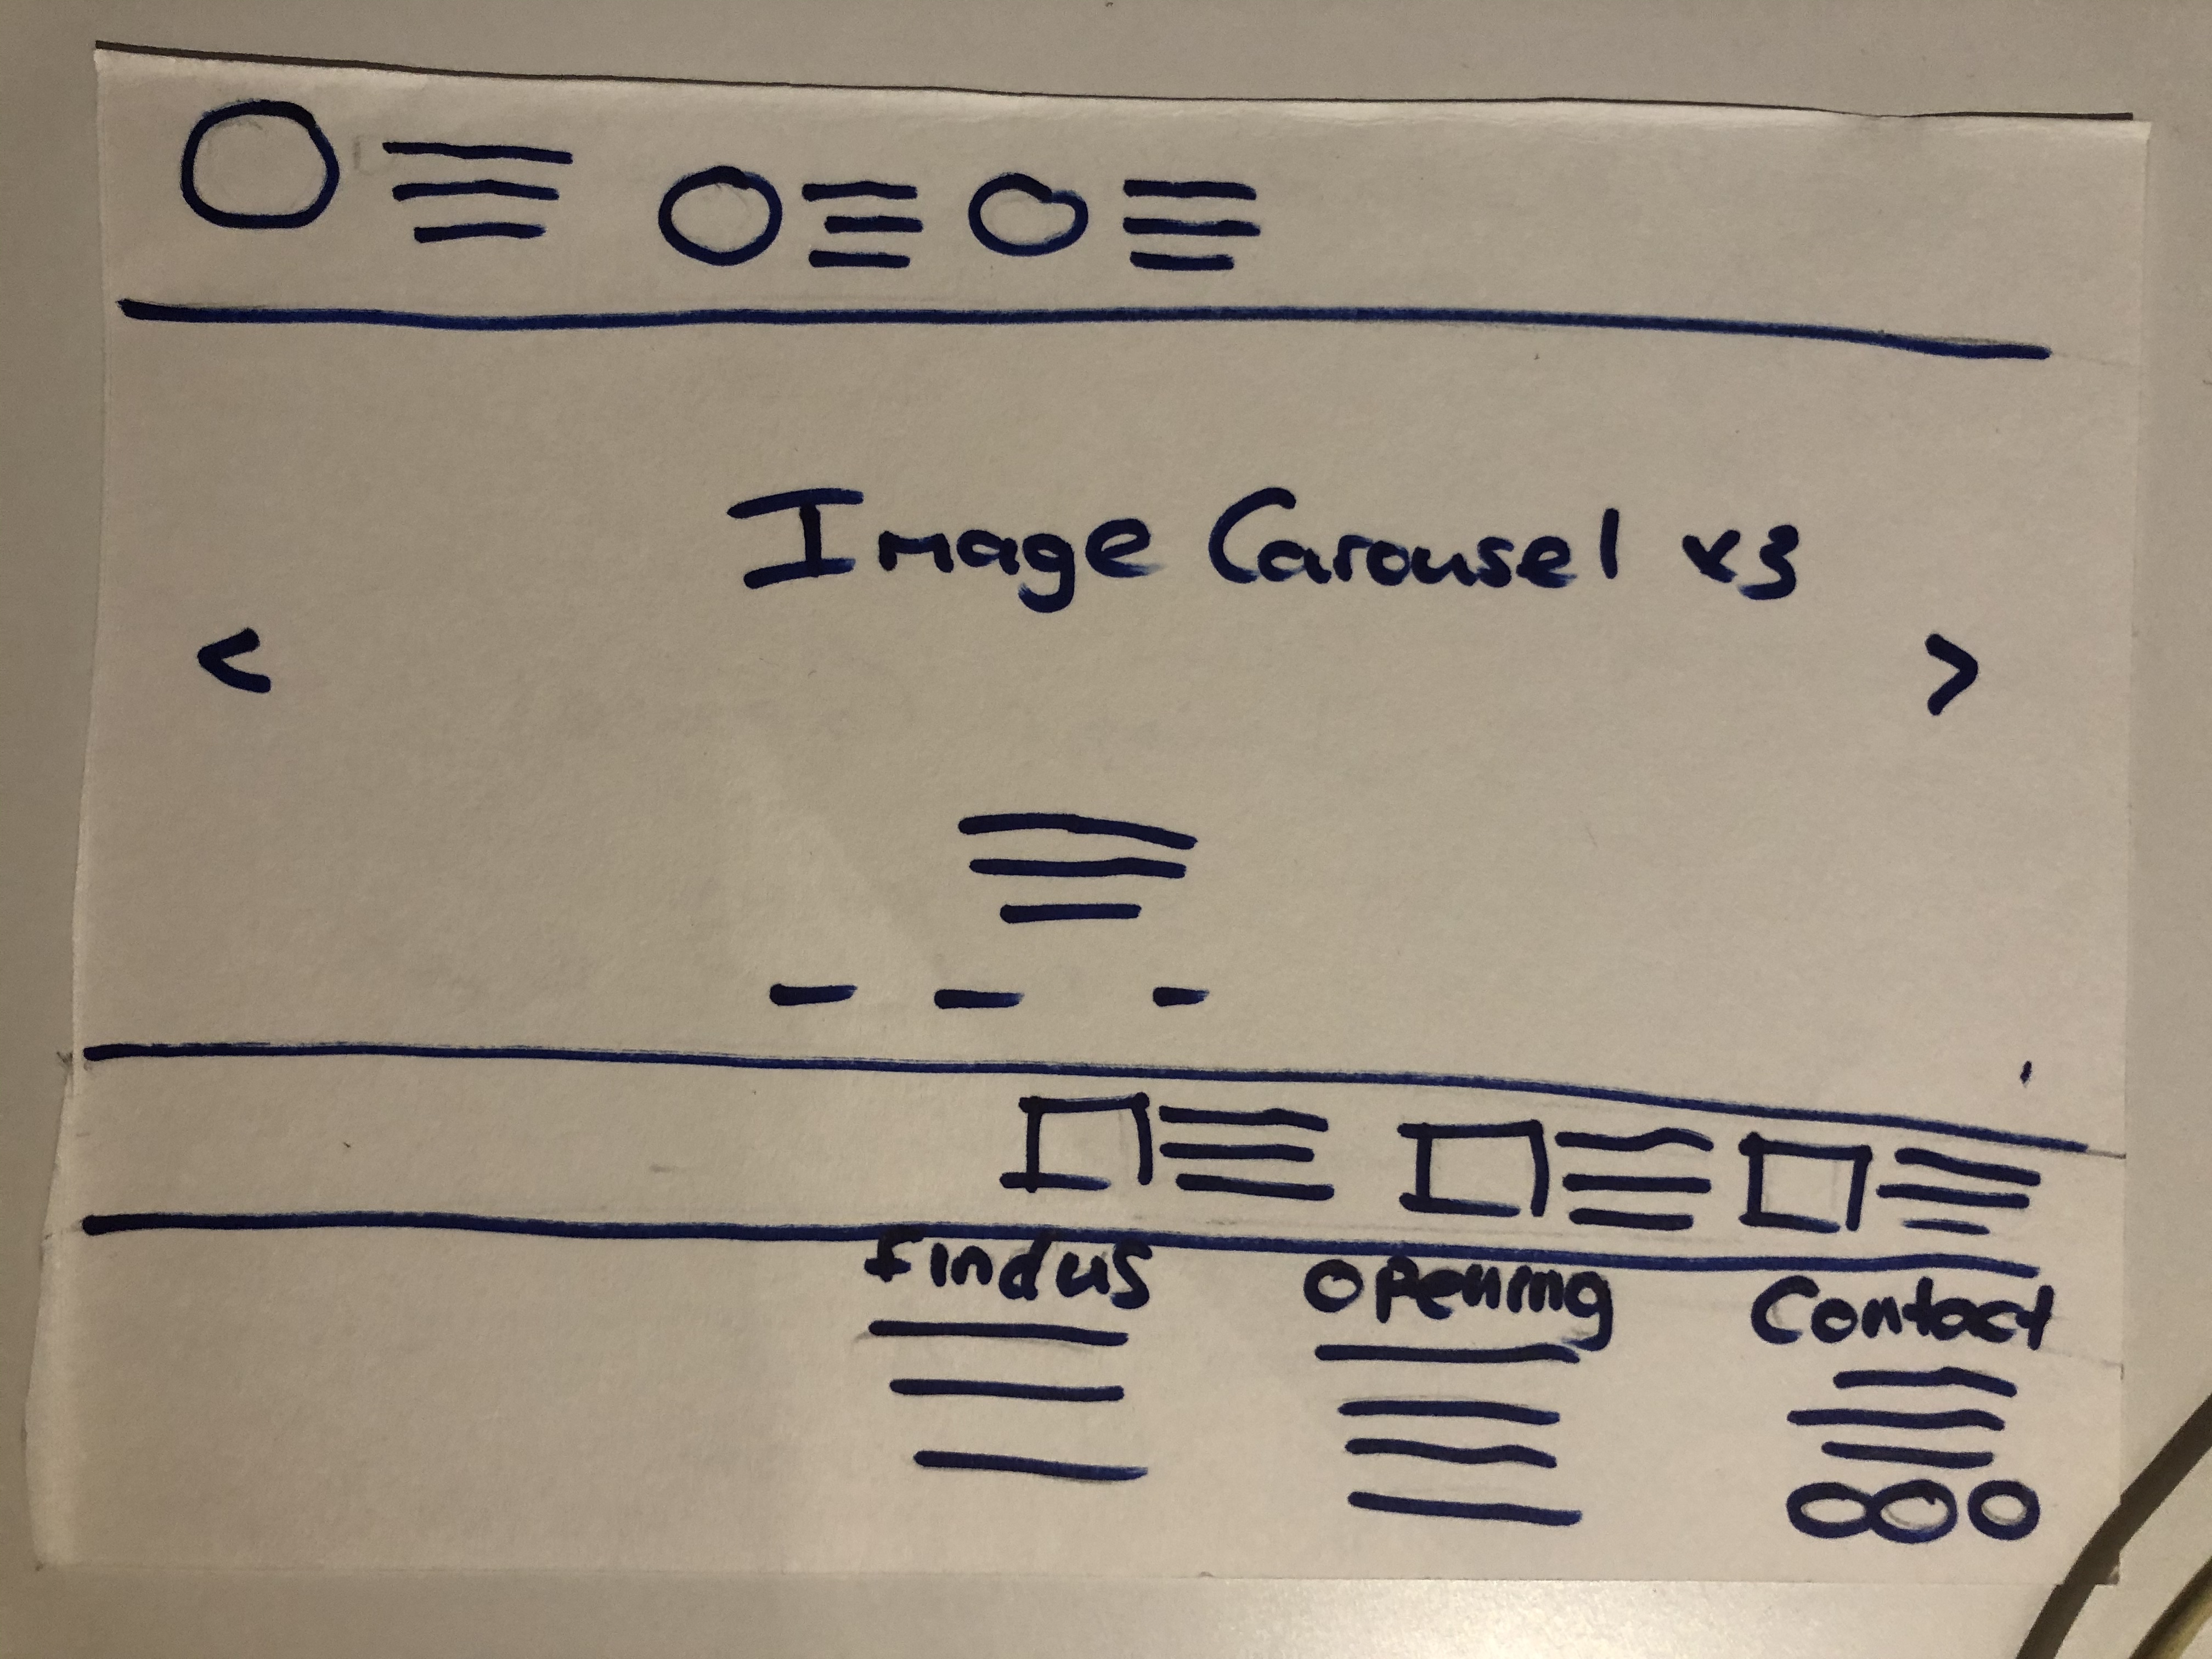 Image Carousel x3
<
>
Find us
Opening
Contact